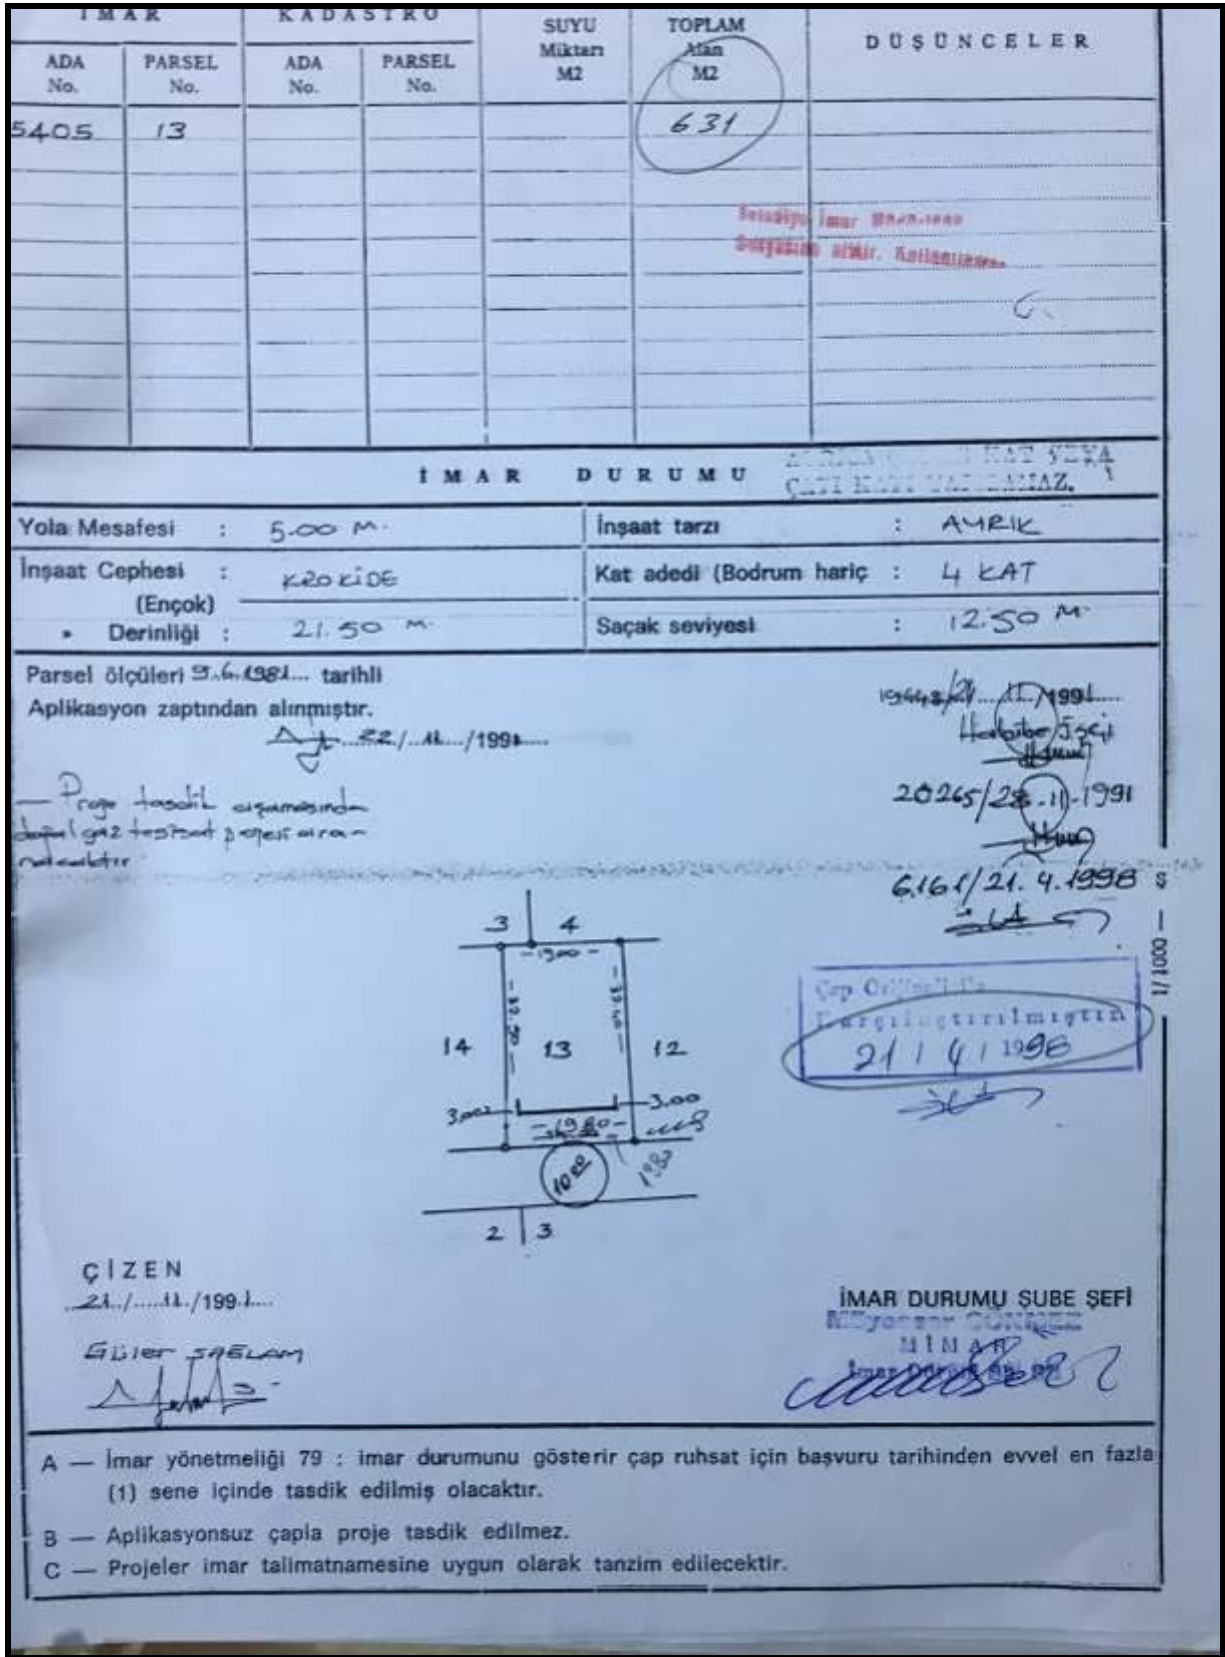 İMAR KADASTRO SUYU Miktarı M2 TOPLAM Alan M2 DÜŞÜNCELER
ADA No. PARSEL No. ADA No. PARSEL No.
5405 13 631
Belediye İmar
Dosyasına aittir.
İMAR DURUMU
KAT VEYA
ÇATI KATI
Yola Mesafesi : 5.00 M. İnşaat tarzı : AYRIK
İnşaat Cephesi : KROKİDE Kat adedi (Bodrum hariç : 4 KAT
(Ençok)
" Derinliği : 21.50 M. Saçak seviyesi : 12.50 M.
Parsel ölçüleri 9.6.1981... tarihli
Aplikasyon zaptından alınmıştır.
22/11/1991
19448/21.11/1991
Habibe
20265/28.11.1991
— Proje tasdik aşamasında
doğal gaz tesisat projesi aran-
6161/21.4.1998
Ş — 0011/1
3 4
19.00
32.50
14 13 12
3.00 3.00
19.80
19.80
10.00
2 3
Çap Orijinali ile
Karşılaştırılmıştır
21/4/1998
ÇİZEN
21/11/1991
Güler SAĞLAM
İMAR DURUMU ŞUBE ŞEFİ
Müyesser SÖNMEZ
MİMAR
A — İmar yönetmeliği 79 : imar durumunu gösterir çap ruhsat için başvuru tarihinden evvel en fazla
(1) sene içinde tasdik edilmiş olacaktır.
B — Aplikasyonsuz çapla proje tasdik edilmez.
C — Projeler imar talimatnamesine uygun olarak tanzim edilecektir.